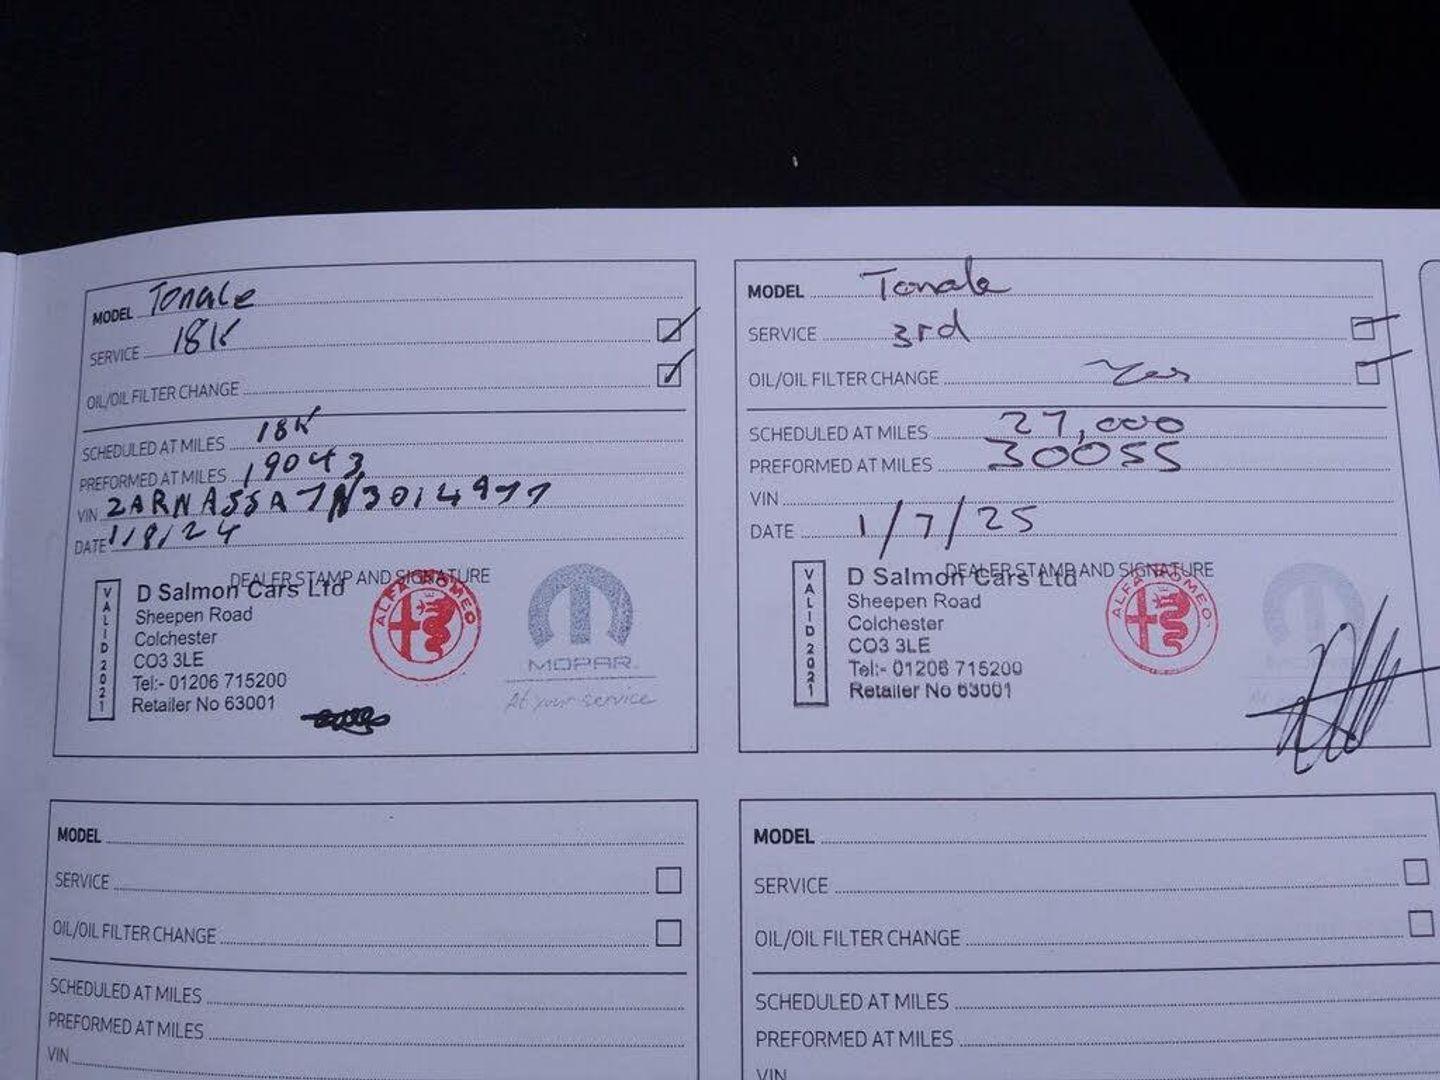 MODEL Tonale
SERVICE 18K
OIL/OIL FILTER CHANGE
SCHEDULED AT MILES 18K
PREFORMED AT MILES 19043
VIN
DATE 1/8/24
DEALER STAMP AND SIGNATURE
VALID 2021
D Salmon Cars Ltd
Sheepen Road
Colchester
CO3 3LE
Tel:- 01206 715200
Retailer No 63001
ALFA ROMEO
MOPAR
At your service
MODEL Tonale
SERVICE 3rd
OIL/OIL FILTER CHANGE Yes
SCHEDULED AT MILES 27,000
PREFORMED AT MILES 30055
VIN
DATE 1/7/25
DEALER STAMP AND SIGNATURE
VALID 2021
D Salmon Cars Ltd
Sheepen Road
Colchester
CO3 3LE
Tel:- 01206 715200
Retailer No 63001
ALFA ROMEO
MODEL
SERVICE
OIL/OIL FILTER CHANGE
SCHEDULED AT MILES
PREFORMED AT MILES
VIN
MODEL
SERVICE
OIL/OIL FILTER CHANGE
SCHEDULED AT MILES
PREFORMED AT MILES
VIN